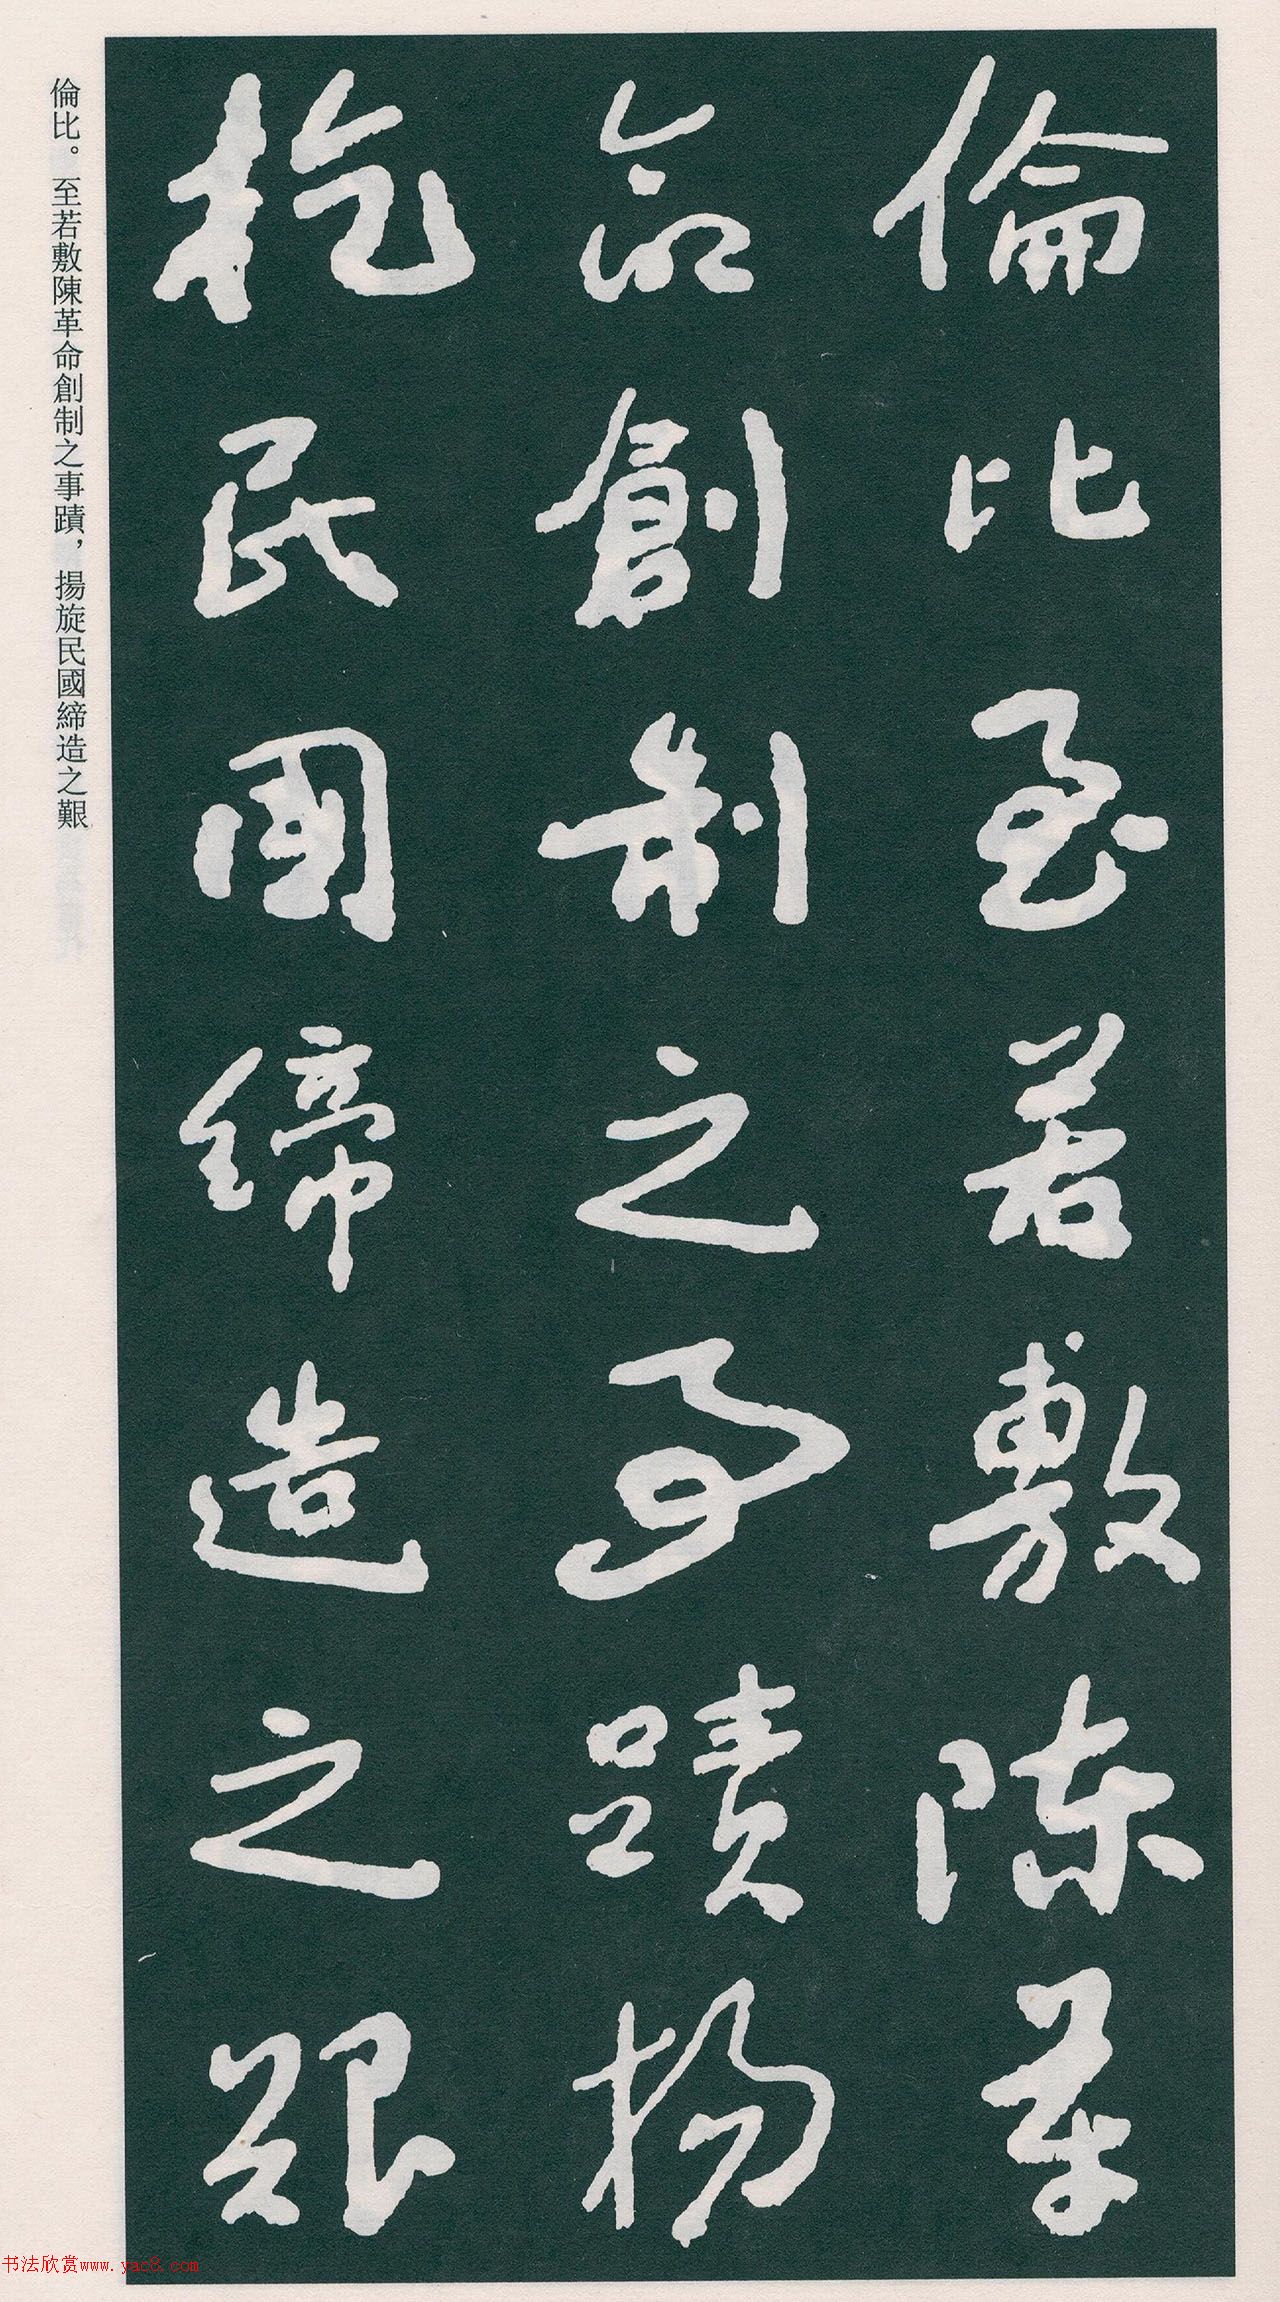 倫比至若敷陳革
命創制之事蹟揚
旋民國締造之艱
倫比。至若敷陳革命創制之事蹟，揚旋民國締造之艱
书法欣赏www.yac8.com